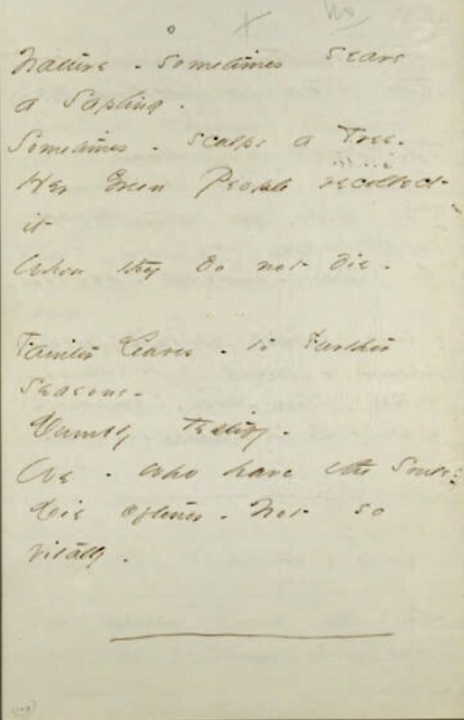 No
Nature - sometimes sears
a Sapling -
Sometimes - scalps a Tree -
Her Green People recollect
it
When they do not die -
Fainter Leaves - to Further
Seasons -
Dumbly testify -
We - who have the Souls -
Die oftener - Not so
vitally -